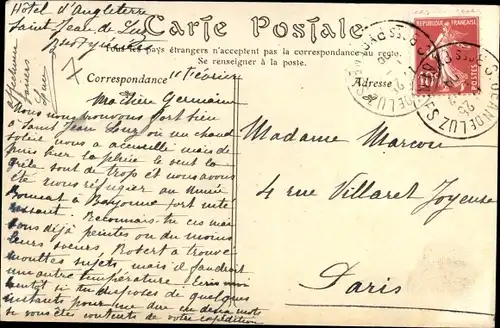 Hôtel d'Angleterre
Saint Jean de Luz
Carte Postale
Tous les pays étrangers n'acceptent pas la correspondance au recto.
Se renseigner à la poste.
Correspondance 11 Février
Adresse
REPUBLIQUE FRANÇAISE
POSTES
Ma chère Germaine
Nous nous trouvons fort bien
à Saint Jean de Luz où un chaud
soleil nous a accueilli mais depuis
hier la pluie le vent la
grêle sont de trop et nous avons
été nous réfugier au Musée
Bonnat à Bayonne fort inté
ressant.
vous déjà peintes ou du moins
leurs soeurs, Robert a trouvé
sujets, mais il faudrait
une autre température. Ecris moi
si tu disposes de quelques
instants pour me dire en deux mots
si vous êtes contents de votre expédition
Madame Marcou
4 rue Villaret Joyeuse
Paris